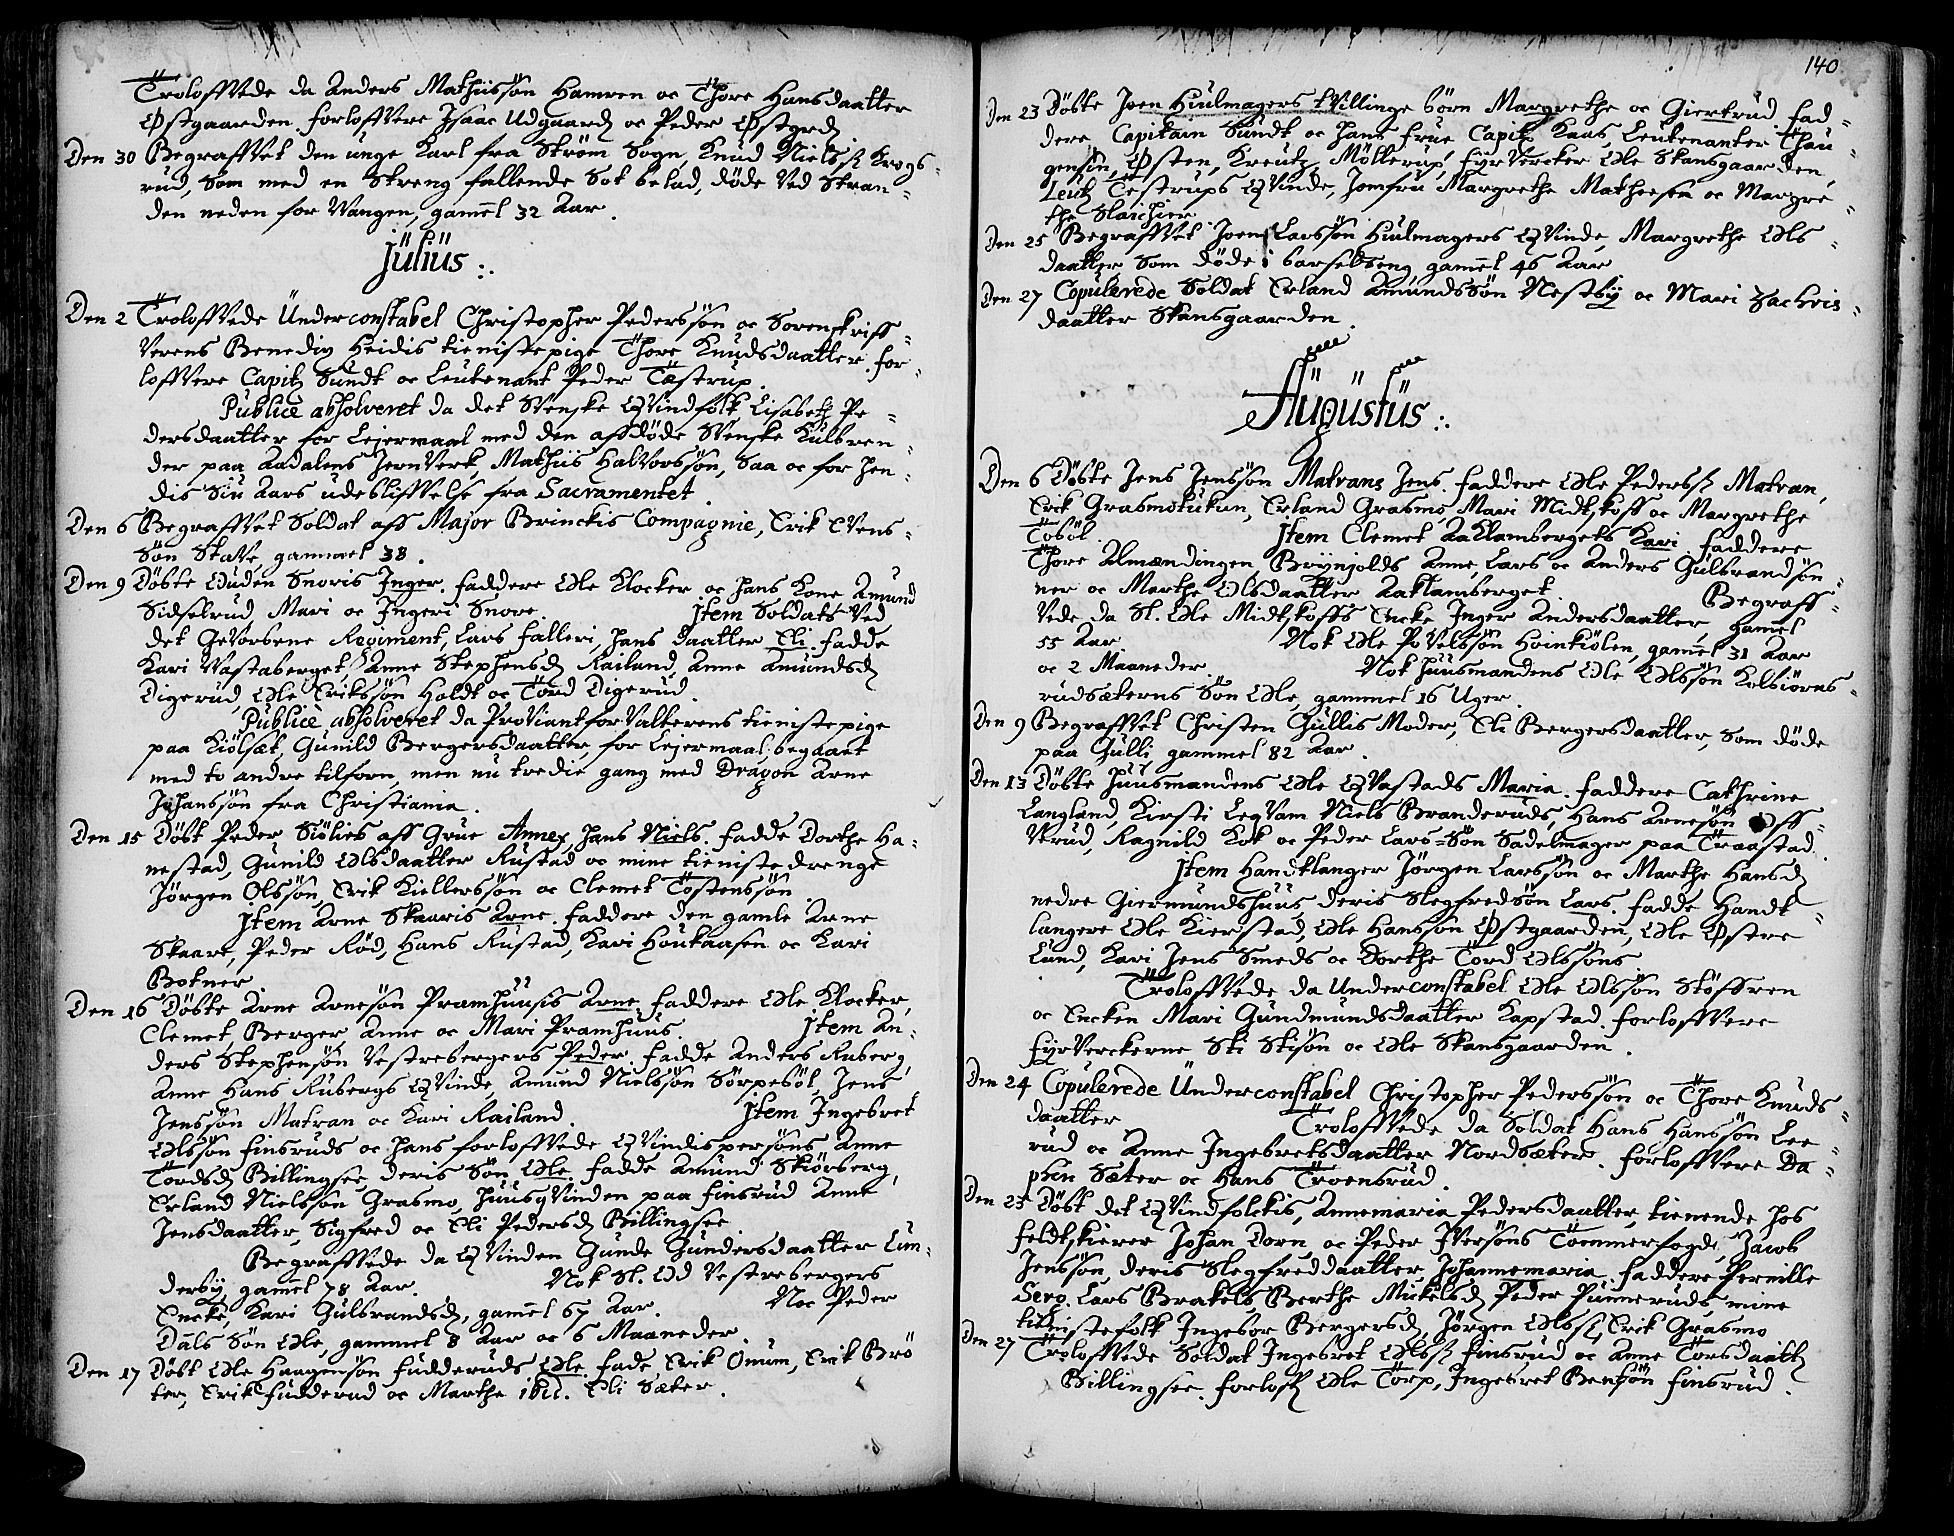 Troloffvede da Anders Mathiissøn Hamren oc Thore Hansdaatter
Østgaarden. forloffvere Isaac Udgaard oc Peder Østgrd
Den 30 Begraffvet den unge Karl fra Strøm Sogn, Knud Nielss. Krogs-
rud, som med en Streng fallende Sot belad, døde ved Stran-
den neden for Vangen, gamel 32 Aar.
Julius:.
Den 2 Troloffvede Underconstabel Christopher Pederssøn oc Sorenskriff-
verens Benedix Heidis tienistepige Thore Knudsdaatter. for-
loffvere Capit. Sundt oc Leutenant Peder Tæstrup.
Publicè absolveret da det Svenske Qvindfolk Lisabeth Pe-
dersdaatter for Lejermaal med den affdøde Svenske Kulbren-
der paa Aadalens Jernverk, Mathiis Halvorssøn, saa oc for hen-
dis siu Aars udebliffvelse fra Sacramentet.
Den 6 Begraffvet Soldat aff Major Brinckis Compagnie, Erik Evens-
søn Skatve, gammel 38.
Den 9 Døbte Auden Snoris Inger. faddere Ole Klocker oc hans Kone Amund
Sidselrud, Mari oc Ingeri Snore. Item Soldats ved
det Gevorbene Regiment, Lars Falleri, hans daatter Eli. fadde
Kari Vastaberget, Anne Stephensd. Railand, Anne Amundsd.
Digerud, Ole Erikssøn Holdt oc Tord Digerud.
Publicè absolveret da Proviantforvalterens tienistepige
paa Kiølsæt, Gunild Bergersdaatter, for Lejermaal begaaet
med to andre tilforn, men nu tredie gang med Dragon Arne
Johanssøn fra Christiania.
Den 15 Døbt Peder Siølies aff Grue Annex, hans Niels. fadde Dorthe Ha-
nestad, Gunild Olsdaatter Rustad oc mine tienistedrenge
Jørgen Olssøn, Erik Kiellerssøn oc Clemet Tostenssøn.
Item Arne Skaaris Arne. faddere den gamle Arne
Skaare, Peder Rød, Hans Rustad, Kari Houkaasen oc Kari
Botner
Den 16 Døbte Arne Arnesøn Pramhuusis Arne. faddere Ole Klocker,
Clemet, Berger, Anne oc Mari Pramhuus. Item An-
ders Stephensøn Vestrebergers Peder. fadde Anders Ruberg,
Anne Hans Rubergs Qvinde, Amund Nielssøn Sørpebøl, Jens
Jenssøn Matran oc Kari Railand. Item Ingebret
Olssøn Finsruds oc hans forloffvede Qvindispersons Anne
Tordsd. Billingsee, deris Søn Ole. fadde Amund Skiøvberg,
Erland Nielssøn Grasmo, Huusqvinden paa Finsrud Anne
Jensdaatter, Sigfred oc Eli Pedersd. Billingsee
Begraffvede da Qvinden Gunde Gundersdaatter Lun-
derby, gamel 78 Aar. Nok Sl. Od Vestrebergers
Encke, Kari Gulbrandsd, gamel 67 Aar. Noc Peder
Dals Søn Ole, gammel 8 Aar oc 6 Maaneder.
Den 17 Døbt Ole Haagensøn Fudderuds Ole. fade Erik Onum, Erik Brø
ter, Erik Fudderud oc Marthe ibid. Eli Sæter.
140
Den 23 Døbte Joen Hiulmagers tvillinge børn Margrethe oc Giertrud fad-
dere Capitain Sundt oc hans frue Capit. Kaas, Leutenanter Thau-
gensen, Østen, Kreutz, Møllerup, Fyrvercker Ole Skansgaarden,
Leut. Tæstrups Qvinde, Jomfru Margrethe Matheesen oc Margre-
the Slaichier
Den 25 Begraffvet Joen Larssøn Hiulmagers Qvinde, Margrethe Ols-
daatter som døde i barselseng gamel 46 Aar
Den 27 Copulerede Soldat Erland Amundssøn Nestby oc Mari Zachris-
daatter Skansgaarden.
Augustus:.
Den 6 Døbte Jens Jenssøn Matrans Jens. faddere Ole Pederss. Matran,
Erik Grasmotukun, Erland Grasmo, Mari Midtskoff oc Margrethe
Tobøl. Item Clemet Aaklambergets Kari. faddere
Thore Almændingen, Brynjolds Anne, Lars oc Anders Gulbrandsøn-
ner oc Marthe Olsdaatter Aaklamberget. Begraff-
vede da Sl. Ole Midtskoffs Encke Inger Andersdaatter, gamel
55 Aar. Nok Ole Povelssøn Hvinkiølen, gamel 31 Aar
oc 2 Maaneder. Nok Huusmandens Ole Olssøn Kolbiørns-
rudsæterns Søn Ole, gammel 16 Uger.
Den 9 Begraffvet Christen Gullis Moder, Eli Bergersdaatter, som døde
paa Gulli, gammel 82 Aar.
Den 13 Døbte Huusmandens Ole Qvastads Maria. faddere Cathrine
Langland, Kirsti Leqvam Niels Branderuds, Hans Arnesøn Off-
strud, Ragnild Kok oc Peder Lars-Søn Sadelmager paa Traastad.
Item Handtlanger Jørgen Larssøn oc Marthe Hansd.
nedre Giermundshuus deris Slegfredsøn Lars. fadde Handt-
langere Ole Kierstad, Ole Hanssøn Østgaarden, Ole Østre-
Lund, Kari Jens Smeds oc Dorthe Tord Olssøns
Troloffvede da Underconstabel Ole Olssøn Støffren
oc Encken Mari Gundmundsdaatter Kapstad. forloffvere
Fyrverckerne Sti Stisøn oc Ole Skansgaarden.
Den 24 Copulerede Underconstabel Christopher Pederssøn oc Thore Knuds-
daatter. Troloffvede da Soldat Hans Hanssøn Lee-
rud oc Anne Ingebretsdaatter Nordsæter. forloffvere Da-
phen Sæter oc Hans Troensrud.
Den 25 Døbt det Qvindfolckis, Annemaria Pedersdaatter, tienende hos
Feldtskierer Johan Dorn oc Peder Iversøns Tømmerfogd, Jacob
Jenssøn, deris Slegfreddaatter Johannemaria. faddere Pernille
Sero. Lars Brakels, Berthe Mickelsd. Peder Punneruds, mine
tienistefolk Ingebor Bergersd, Jørgen Olss. Erik Grasmo
Den 27 Troloffvede Soldat Ingebret Olss. Finsrud oc Anne Torsdaatt.
Billingsee. forloff. Ole Torp, Ingebret Bensøn Finsrud.